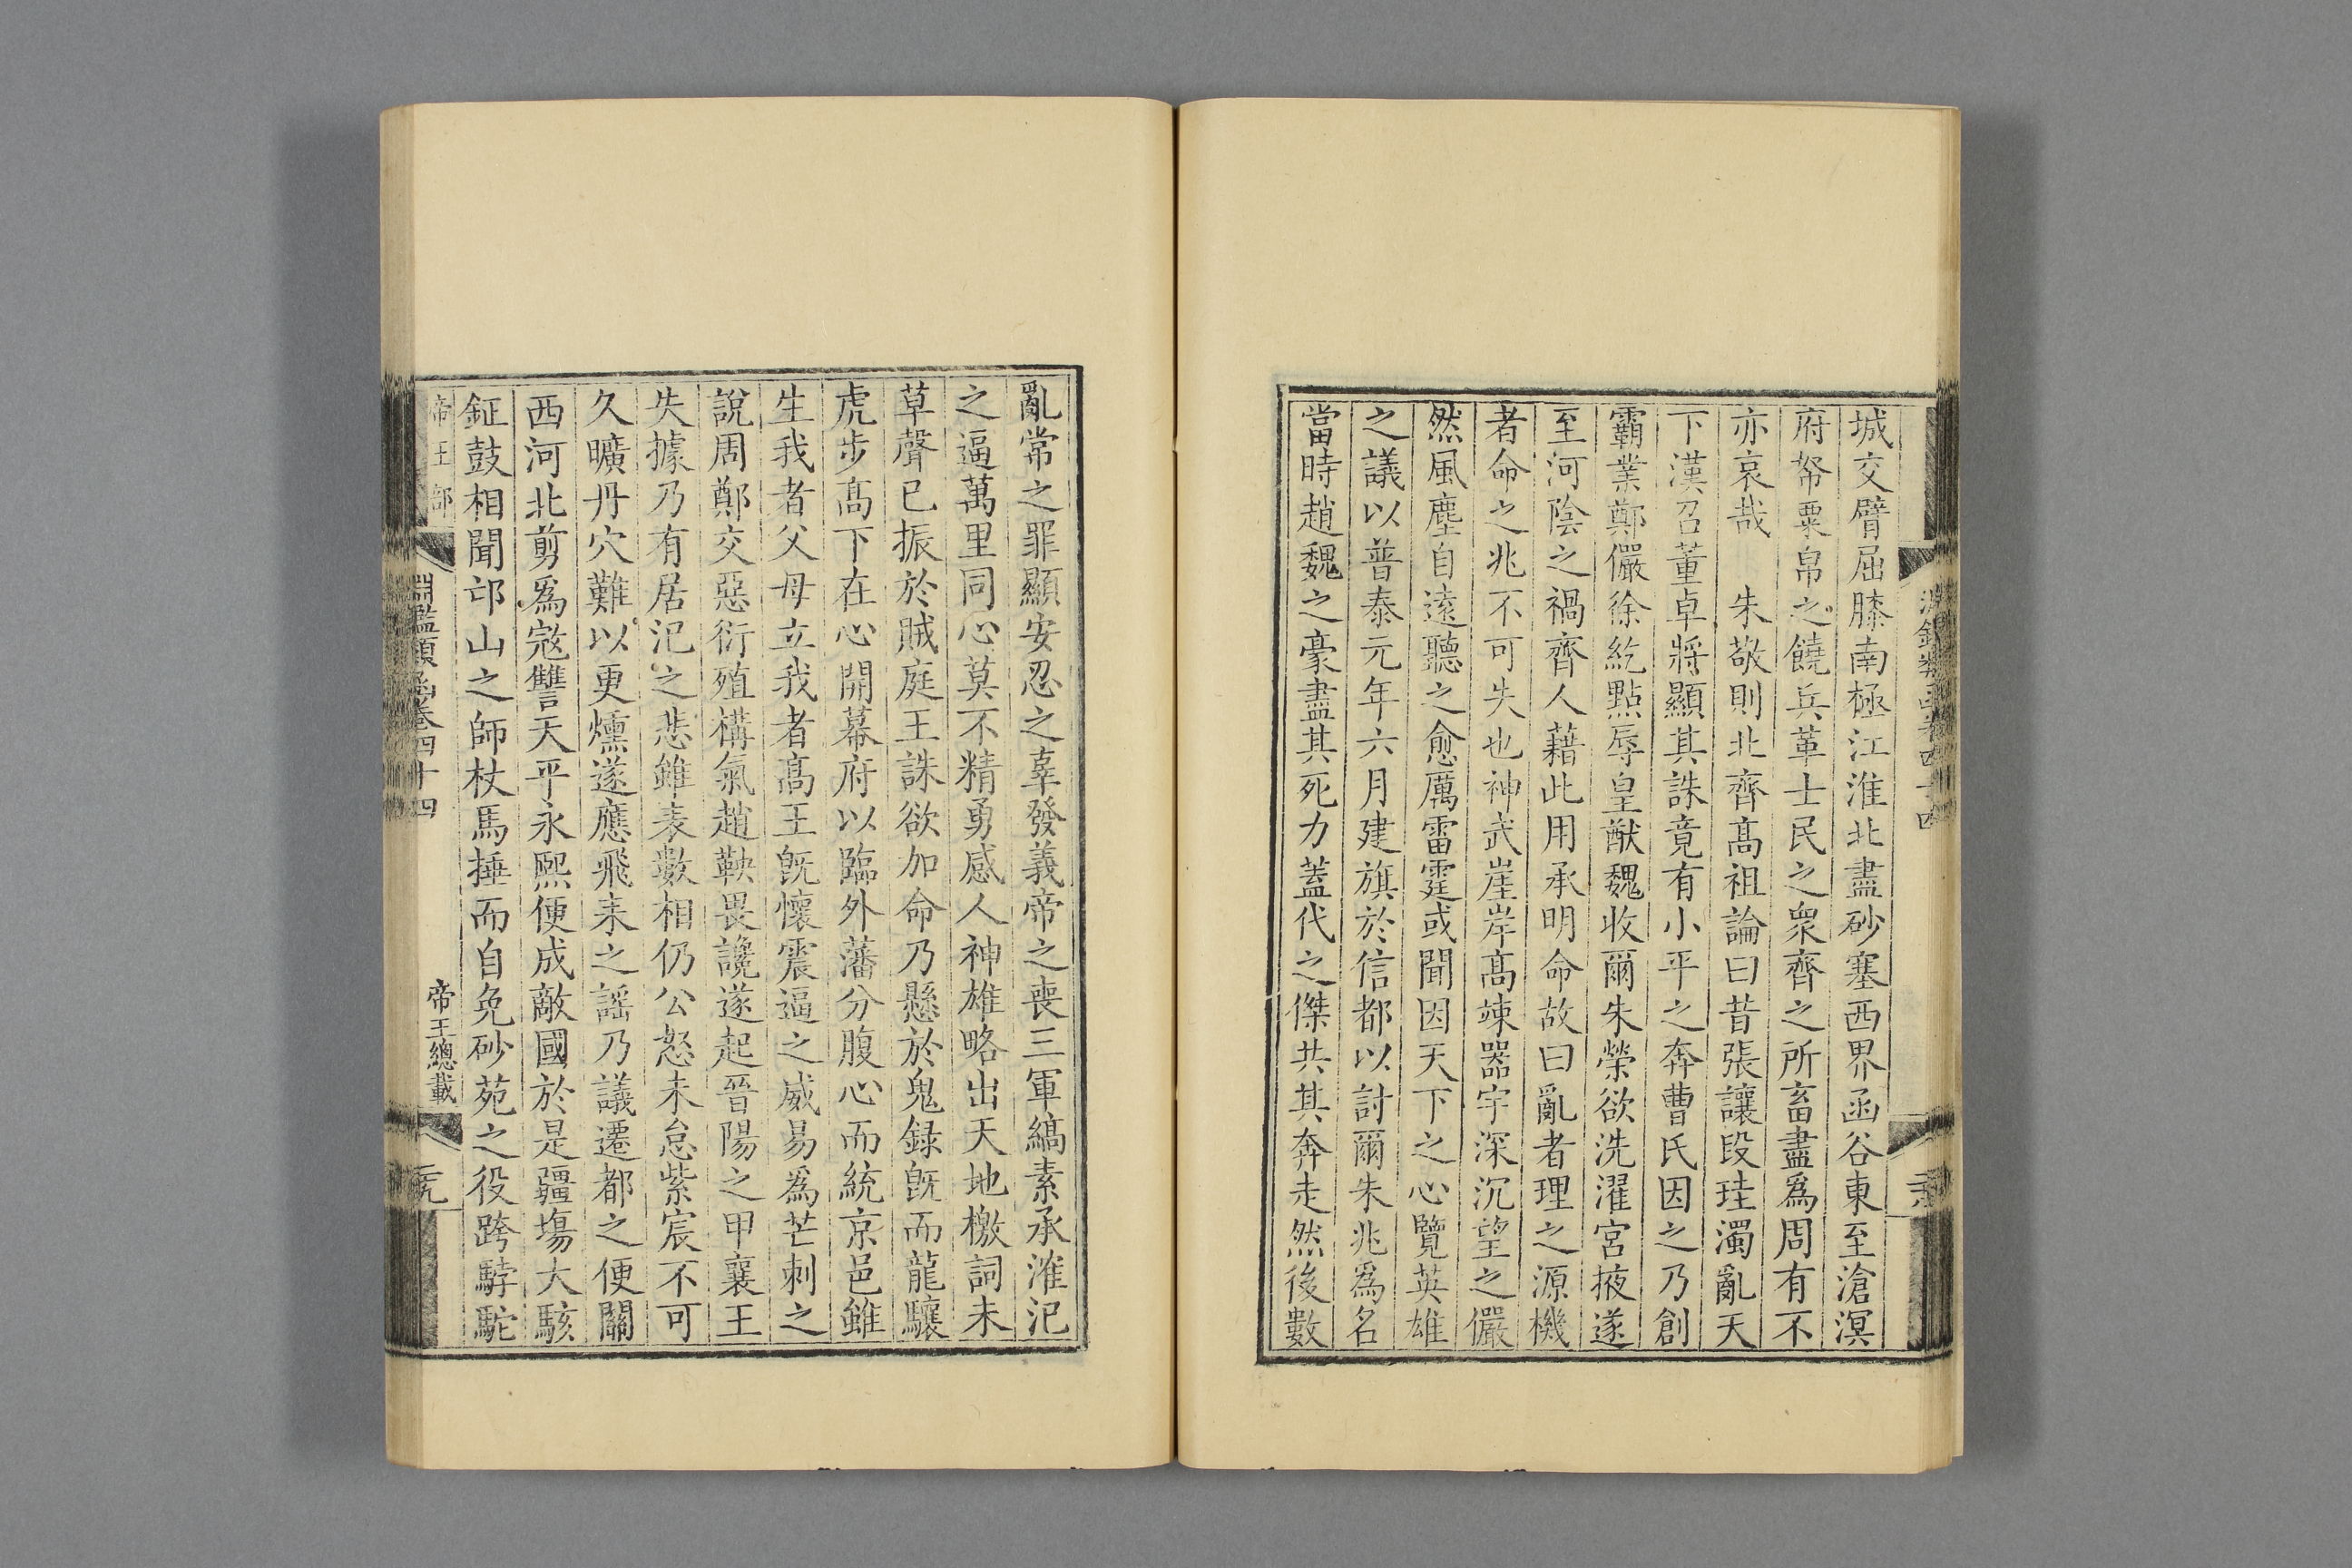 城交臂屈膝南極江淮北盡砂塞西界函谷東至滄溟
府帑粟帛之饒兵革士民之衆齊之所畜盡爲周有不
亦哀哉　朱敬則北齊髙祖論曰昔張讓段珪濁亂天
下漢召董卓將顯其誅竟有小平之奔曹氏因之乃創
霸業鄭儼徐紇點辱皇猷魏收爾朱榮欲洗濯宮掖遂
至河陰之禍齊人藉此用承明命故曰亂者理之源機
者命之兆不可失也神武崖岸髙竦器宇深沉望之儼
然風塵自遠聽之愈厲雷霆或聞因天下之心覽英雄
之議以普泰元年六月建旗於信都以討爾朱兆爲名
當時趙魏之豪盡其死力蓋代之傑共其奔走然後數
亂常之罪顯安忍之辜發義帝之喪三軍縞素承濰汜
之逼萬里同心莫不精勇感人神雄略出天地檄詞未
草聲已振於賊庭王誅欲加命乃懸於鬼録旣而龍驤
虎步髙下在心開幕府以臨外藩分腹心而統京邑雖
生我者父母立我者髙王旣懷震逼之威易爲芒刺之
說周鄭交惡衍殖構氣趙鞅畏讒遂起晉陽之甲襄王
失據乃有居汜之悲雖表數相仍公怒未怠紫宸不可
久曠丹穴難以更燻遂應飛来之謡乃議遷都之便關
西河北剪爲寇讐天平永熙便成敵國於是疆塲大駭
鉦鼓相聞邙山之師杖馬捶而自免砂苑之役跨駻駝
帝王部
淵鑑類函卷四十四
帝王總載